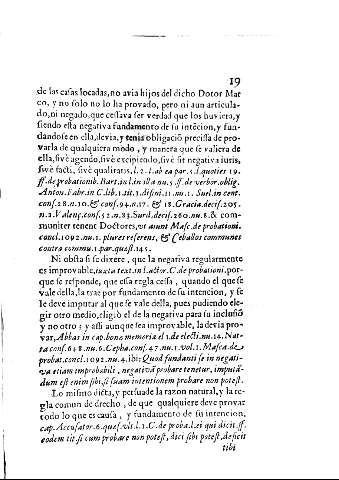 19
de las casas locadas, no avia hijos del dicho Dotor Mar
co, y no solo no lo ha provado, pero ni aun articula-
do, ni negado, que cessava ser verdad que los huviera, y
siendo esta negativa fundamento de su intẽcion, y fun-
dandose en ella, devia, y tenia obligació precissa de pro-
varla de qualquiera modo, y manera que se valiera de
ella, sivè agendo, sivè excipiendo, sivè sit negativa iuris,
sivè facti, sivè qualitatis, l. 2. l. ab ea par. s. l. quoties 19.
ff. de probationib. Bart. in l. in illa nu. 5. ff. de verbor. oblig.
Anton. Fabr. in C. lib. 1. tit. 3. difini. 21. nu. 1. Surd. in cent.
conf. 28. n. 10. & conf. 94. n. 17. & 18. Gracia. decis. 205.
n. 2. Valenç. conf. 52. n. 83. Surd. decis. 260. nu. 8. & com-
muniter tenent Doctores, ut aiunt Masc. de probationi.
concl. 1092. nu. 1. plures referens, & Ceballos communes
contra commu. 1. par. quæst. 145.
Ni obsta si se dixere, que la negativa regularmente
es improvable, iuxta text. in l. actor. C. de probationi. por-
que se responde, que essa regla cessa, quando el que se
vale della, la trae por fundamento de su intencion, y se
le deve imputar al que se vale della, pues pudiendo ele-
gir otro medio, eligiò el de la negativa para su inclusió
y no otro; y assi aunque sea improvable, la devia pro-
var, Abbas in cap. bonæ memoria el 1. de electi. nu. 14. Nat-
ta conf. 648. nu. 6. Cepha. conf. 47. nu. 1. vol. 1. Masca. de
probat. concl. 1092. nu. 4. ibi: Quod fundanti se in negati-
va etiam improbabili, negativã probare tenetur, imputã-
dum est enim sibi, si suam intentionem probare non potest.
Lo mismo dicta, y persuade la razon natural, y la re-
gla comun de drecho, de que qualquiere deve provar
todo lo que es causa, y fundamento de su intencion,
cap. Accusator. 6. quæs. vlt. l. 1. C. de proba. l. ei qui dicit. ff.
eodem tit. si cum probare non potest, dici sibi potest, deficit
tibi